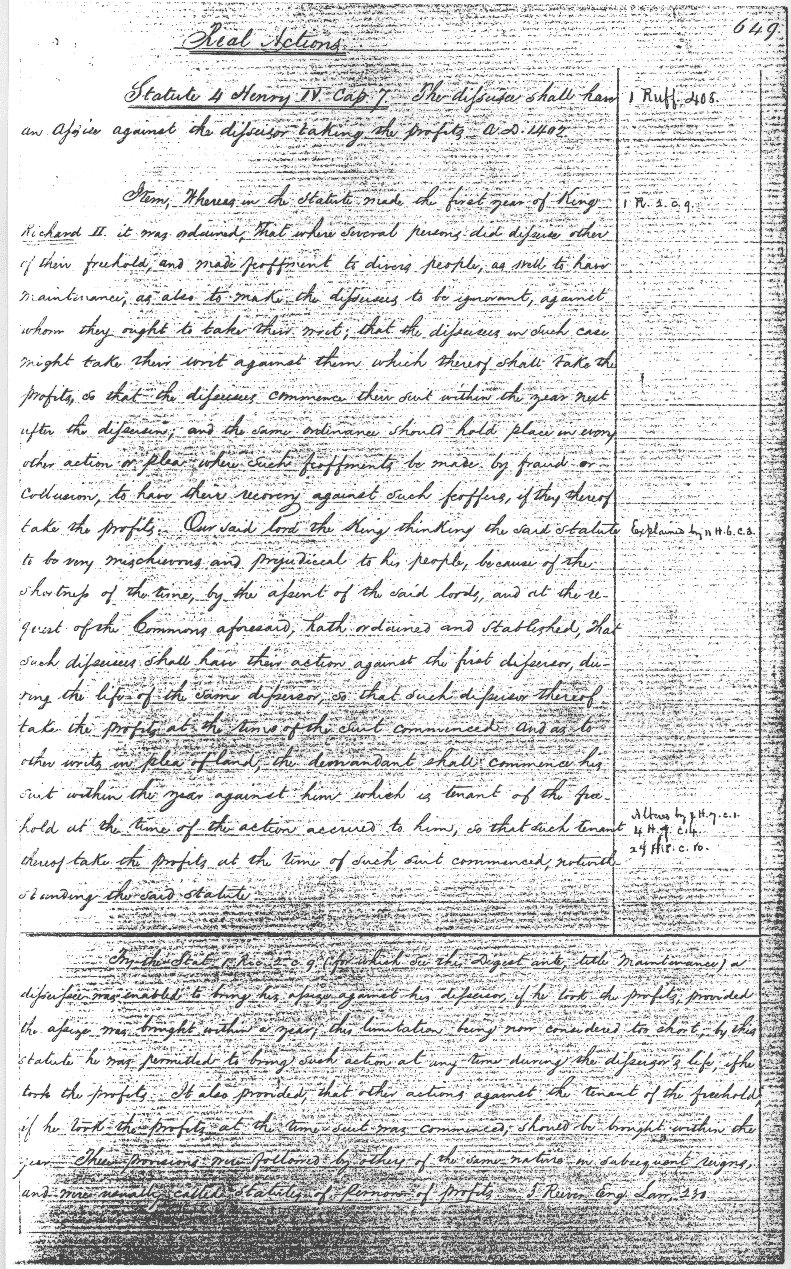 649
Real Actions.
Statute 4 Henry IV Cap 7. The disseisee shall have
1 Ruff. 408.
an Assize against the disseisor taking the profits A.D. 1402.
Item, Whereas in the Statute made the first year of King
1 R. 2. c. 9.
Richard II. it was ordained, that where several persons did disseise other
of their freehold, and made feoffment to divers people, as well to have
maintenance, as also to make the disseisees to be ignorant, against
whom they ought to take their writ; that the disseisees in such case
might take their writ against them which thereof shall take the
profits, so that the disseisees commence their suit within the year next
after the disseisin; and the same ordinance should hold place in every
other action or plea where such feoffments be made by fraud or
collusion, to have their recovery against such feoffers, if they thereof
take the profits. Our said lord the King thinking the said Statute
Explained by 11 H. 6. c. 3.
to be very mischievous and prejudicial to his people, because of the
shortness of the time, by the assent of the said lords, and at the re-
quest of the Commons aforesaid, hath ordained and stablished, that
such disseisees shall have their action against the first disseisor, du-
ring the life of the same disseisor, so that such disseisor thereof
take the profits at the time of the suit commenced. And as to
other writs in plea of land, the demandant shall commence his
suit within the year against him which is tenant of the free-
hold at the time of the action accrued to him, so that such tenant
Altered by 1 H. 7. c. 1.
4 H. 7. c. 4.
thereof take the profits at the time of such suit commenced, notwith
standing the said statute
By the Stat. 1 R. 2. c. 9. (for which see this Digest ante, title Maintenance) a
disseisee was enabled to bring his assize against his disseisor, if he took the profits, provided
the assize was brought within a year; this limitation being now considered too short, by this
statute he was permitted to bring such action at any time during the disseisor's life, if he
took the profits. It also provided, that other actions against the tenant of the freehold
if he took the profits at the time suit was commenced, should be brought within the
year. These provisions were followed by others of the same nature in subsequent reigns,
and were usually called Statutes of Pernors of profits. Reeves Eng. Law,